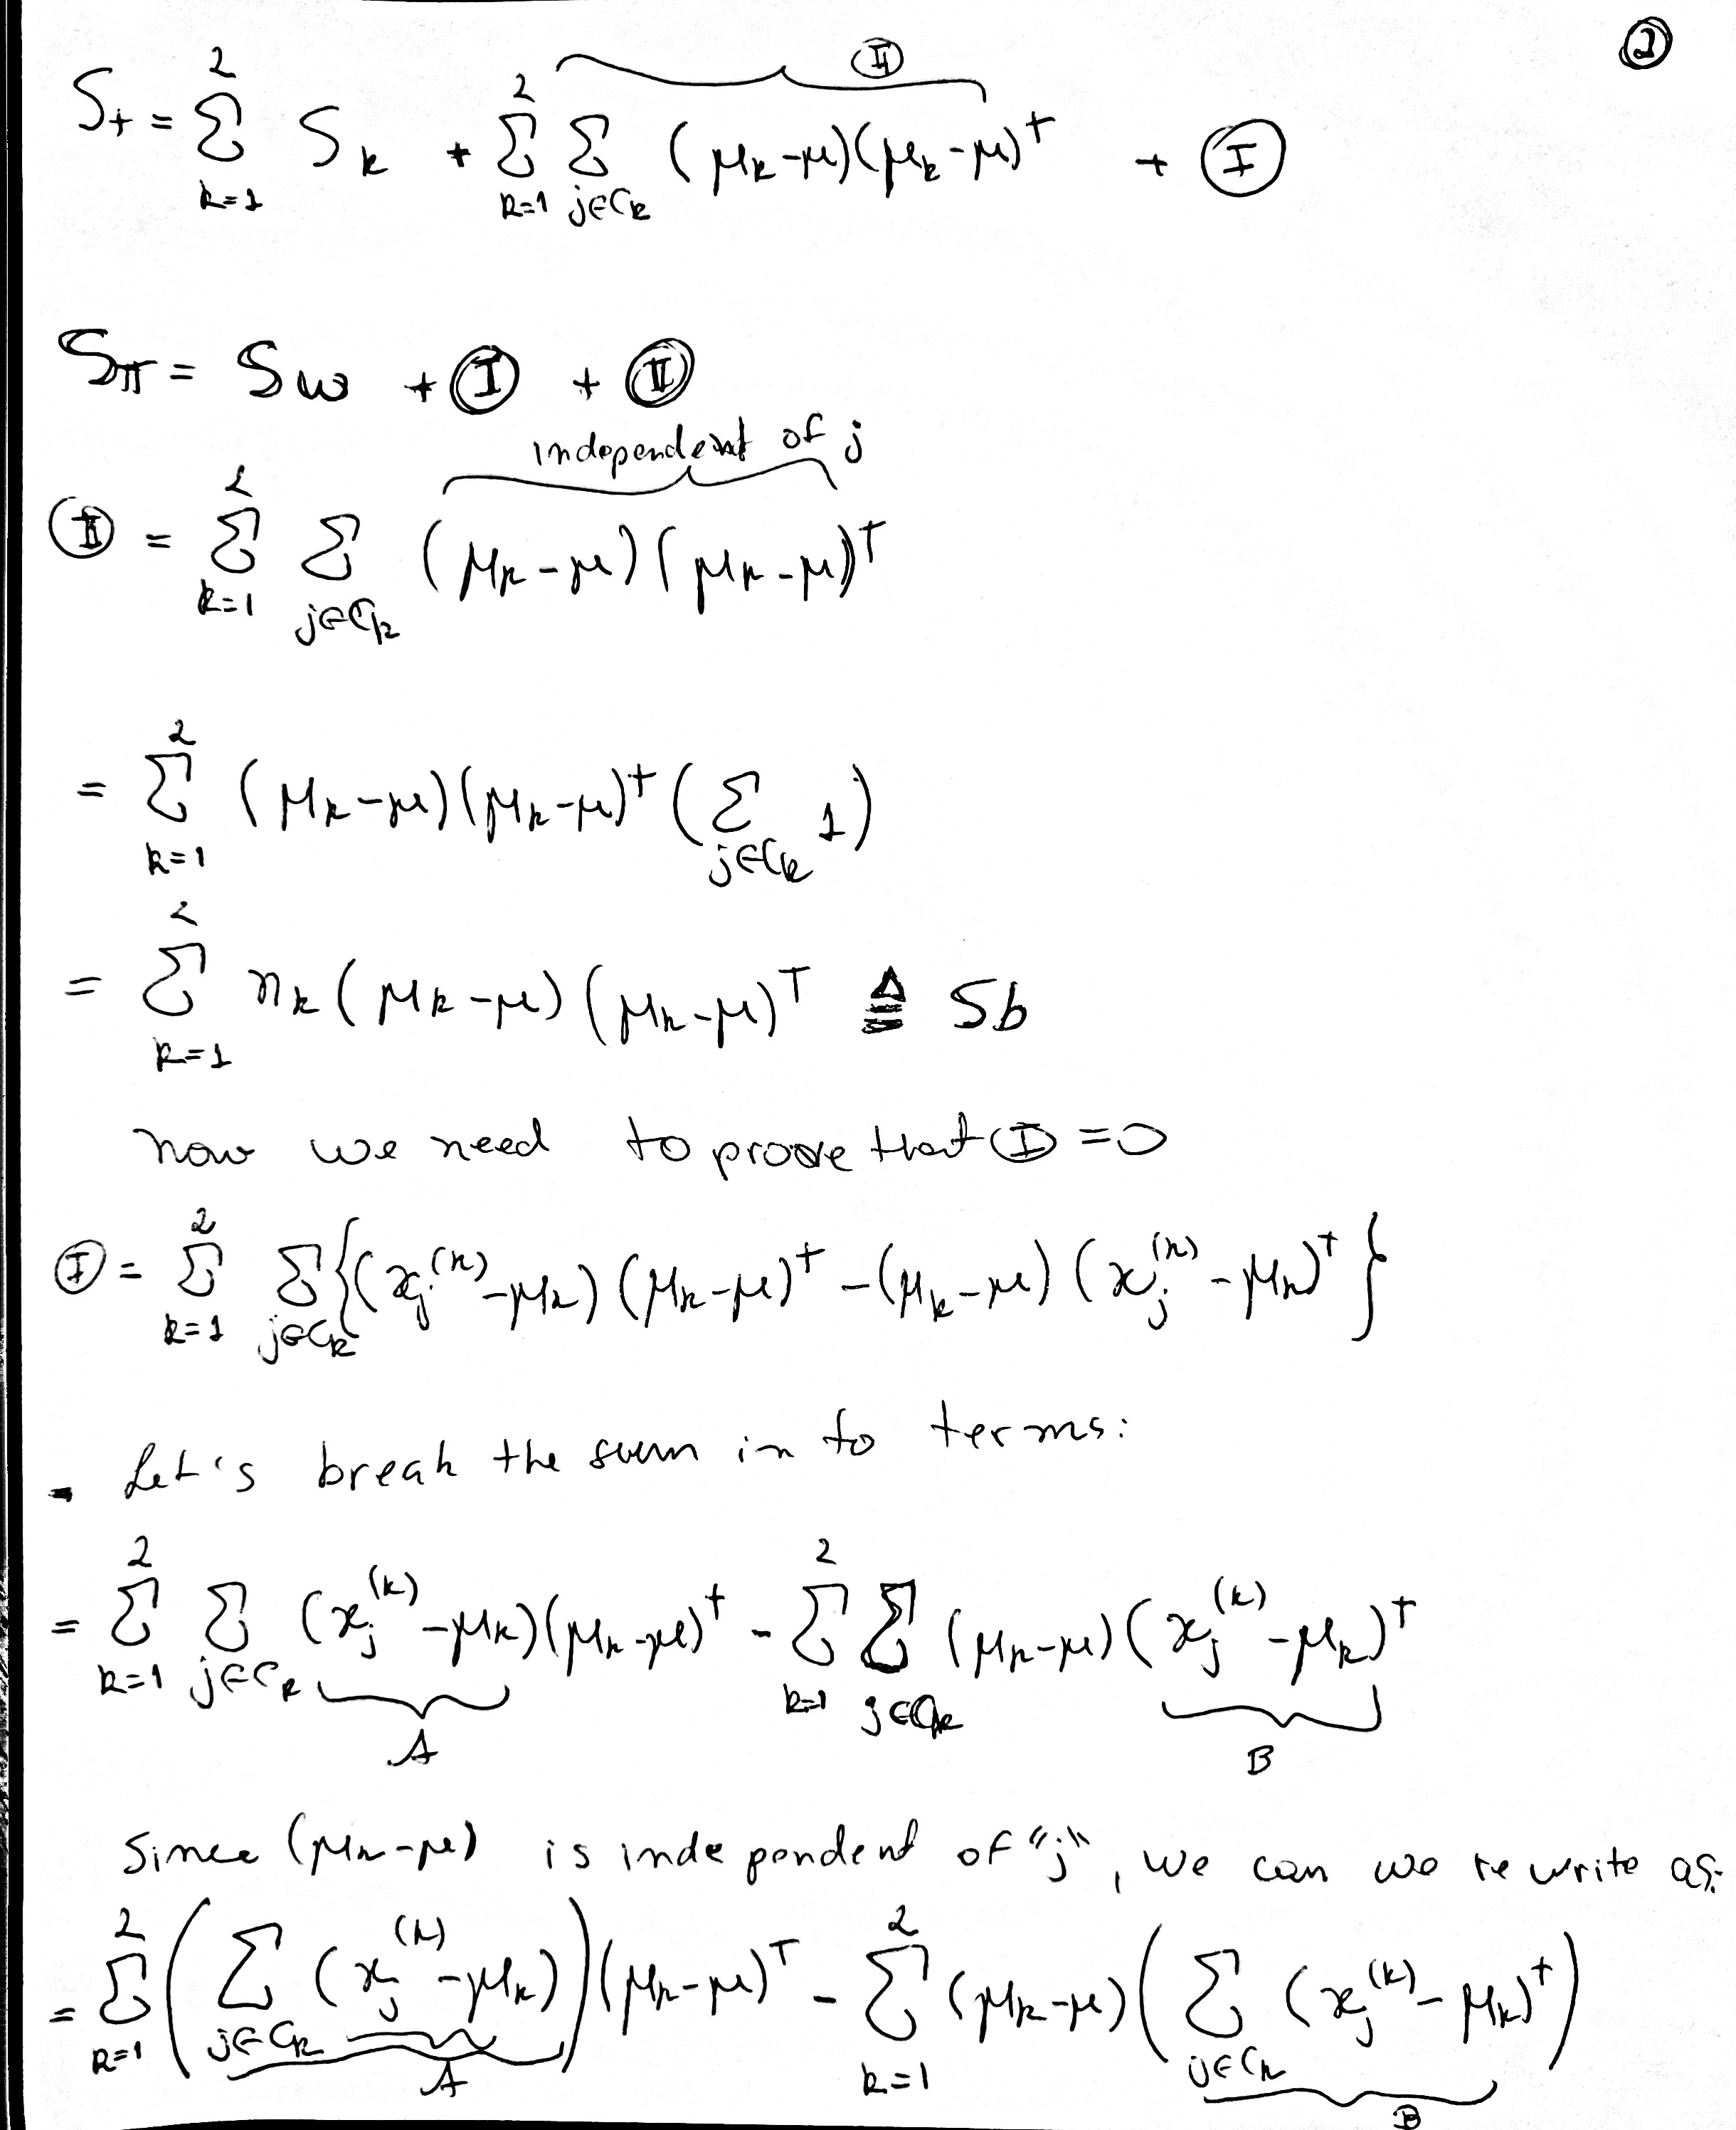 ②
S_t = Σ_{k=1}^{2} S_k + Σ_{k=1}^{2} Σ_{j∈C_k} (μ_k-μ)(μ_k-μ)^T [Ⅱ] + Ⅰ
S_T = S_w + Ⅰ + Ⅱ
independent of j
Ⅱ = Σ_{k=1}^{2} Σ_{j∈C_k} (μ_k-μ)(μ_k-μ)^T
= Σ_{k=1}^{2} (μ_k-μ)(μ_k-μ)^T (Σ_{j∈C_k} 1)
= Σ_{k=1}^{2} n_k(μ_k-μ)(μ_k-μ)^T ≜ Sb
now we need to prove that Ⅰ = 0
Ⅰ = Σ_{k=1}^{2} Σ_{j∈C_k} {(x_j^{(k)}-μ_k)(μ_k-μ)^T - (μ_k-μ)(x_j^{(k)}-μ_k)^T}
- Let's break the sum in to terms:
= Σ_{k=1}^{2} Σ_{j∈C_k} (x_j^{(k)}-μ_k)(μ_k-μ)^T - Σ_{k=1}^{2} Σ_{j∈C_k} (μ_k-μ)(x_j^{(k)}-μ_k)^T
A B
Since (μ_k-μ) is independent of "j", we can we rewrite as:
= Σ_{k=1}^{2} (Σ_{j∈C_k} (x_j^{(k)}-μ_k))(μ_k-μ)^T - Σ_{k=1}^{2} (μ_k-μ)(Σ_{j∈C_k} (x_j^{(k)}-μ_k)^T)
A B